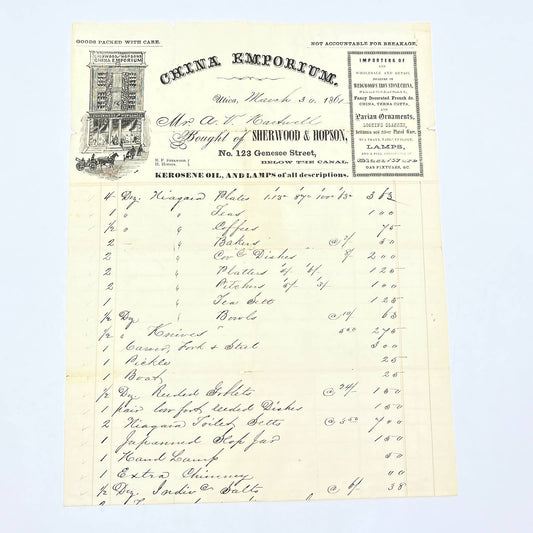 GOODS PACKED WITH CARE.
NOT ACCOUNTABLE FOR BREAKAGE.
SHERWOOD & HOPSON
CHINA EMPORIUM
CHINA EMPORIUM.
Utica, March 30, 1861
Mr A. V.
Bought of SHERWOOD & HOPSON,
No. 123 Genesee Street,
BELOW THE CANAL.
KEROSENE OIL, AND LAMPS of all descriptions.
IMPORTERS OF
AND
WHOLESALE AND RETAIL
DEALERS IN
WEDGWOOD'S IRON STONE CHINA,
Fancy Decorated French do.
CHINA, TERRA COTTA,
AND
Parian Ornaments,
LOOKING GLASSES,
LAMPS,
GAS FIXTURES, &C.
4 Dz Niagara Plates 363
1 " " Teas 100
1/2 " " Coffees 75
2 " Bakers @ 2/ 50
2 " Cov'd Dishes 200
2 " Platters 125
2 " Pitchers 100
1 " Tea Sett 125
1/2 Dz " Bowls @ 10/ 63
1/2 " Knives 275
1 Carver, Fork & Steel 300
1 Pickle 25
1 Boat 25
1/2 Dz Reeded Goblets @ 24/ 150
1 pair low foot reeded Dishes 150
2 Niagara Toilet Setts @ 350 700
1 Japanned Slop Jar 150
1 Hand Lamp 50
1 Extra Chimney
1/2 Dz Indiv Salts @ 6/ 38